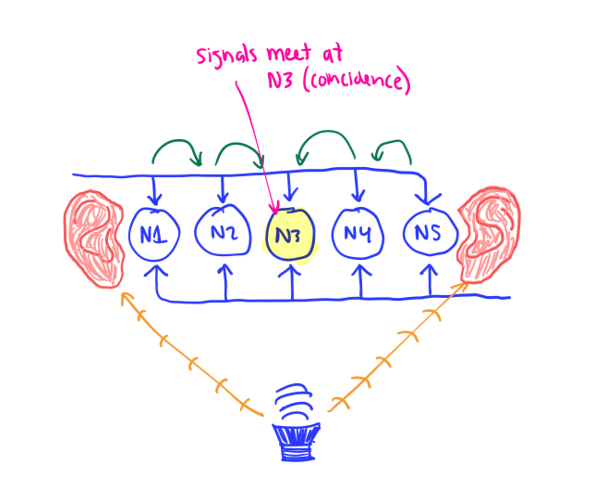 signals meet at
N3 (coincidence)
N1 N2 N3 N4 N5